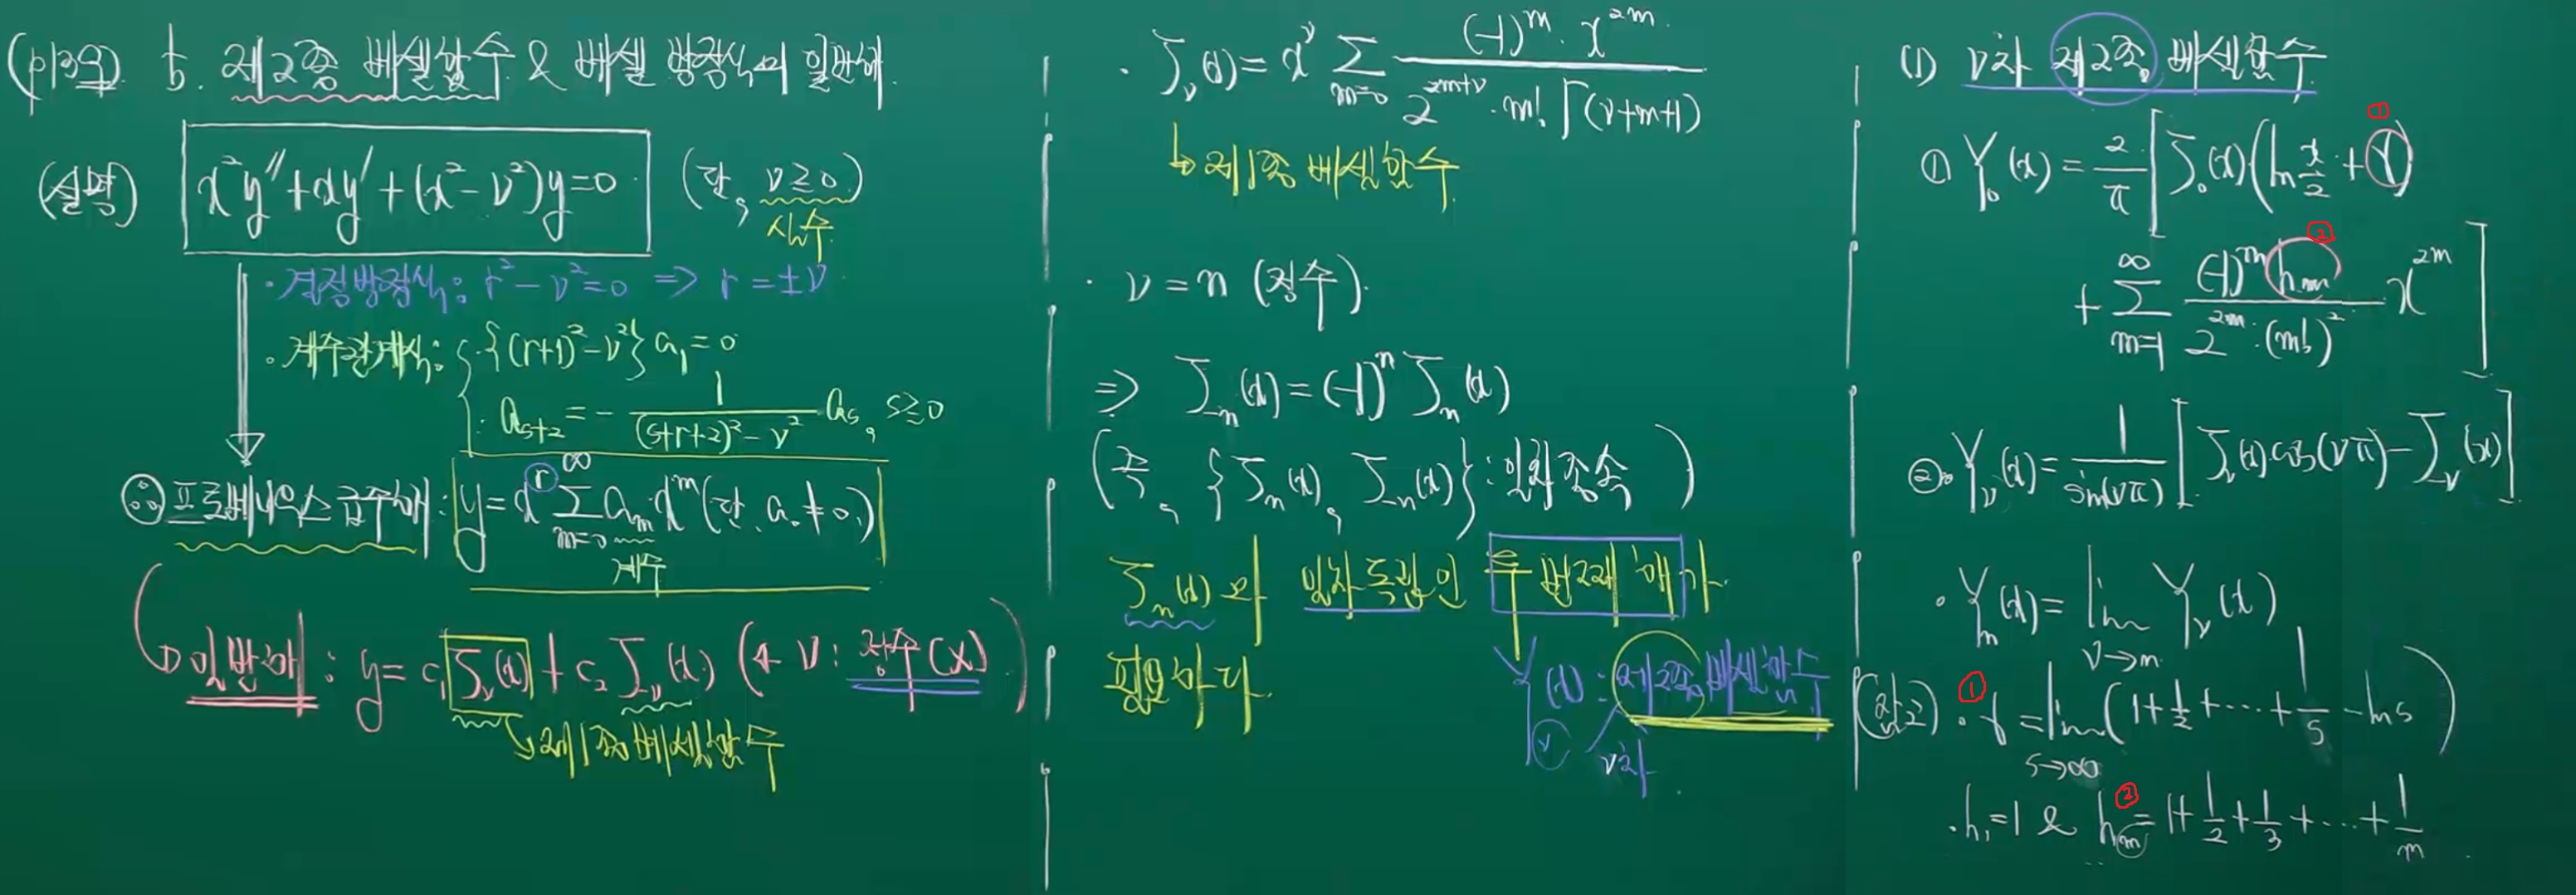 (p139) 5. 제2종 베셀함수 & 베셀 방정식의 일반해.
(설명) x²y″+xy′+(x²-ν²)y=0 (단, ν≥0)
실수
· 결정방정식: r²-ν²=0 ⇒ r=±ν
· 계수관계식: · {(r+1)²-ν²}a₁=0
· a_{s+2} = - 1/((s+r+2)²-ν²) a_s, s≥0
∴ 프로베니우스 급수해: y=x^r ∑_{m=0}^{∞} a_m x^m (단, a₀≠0)
계수
일반해: y= c₁J_ν(x)+c₂J_{-ν}(x) (← ν: 정수(X))
↳ 제1종 베셀함수
· J_ν(x)= x^ν ∑_{m=0} (-1)^m · x^{2m} / (2^{2m+ν} · m! Γ(ν+m+1))
↳ 제1종 베셀함수
· ν=n (정수).
⇒ J_{-n}(x)=(-1)^n J_n(x)
(즉, {J_n(x), J_{-n}(x)}: 일차종속)
J_n(x)와 일차독립인 두 번째 해가
필요하다.
Y_ν(x): 제2종 베셀함수
ν차
(1) ν차 제2종 베셀함수
① Y₀(x) = 2/π [J₀(x)(ln x/2 + γ)
①
②
+ ∑_{m=1}^{∞} (-1)^m h_m / (2^{2m}·(m!)²) x^{2m}]
② Y_ν(x)= 1/sin(νπ) [J_ν(x)cos(νπ)-J_{-ν}(x)]
· Y_n(x)= lim_{ν→n} Y_ν(x)
(참고) ① · γ = lim_{s→∞} (1+1/2+⋯+1/s - ln s)
②
· h₁=1 & h_m=1+1/2+1/3+⋯+1/m